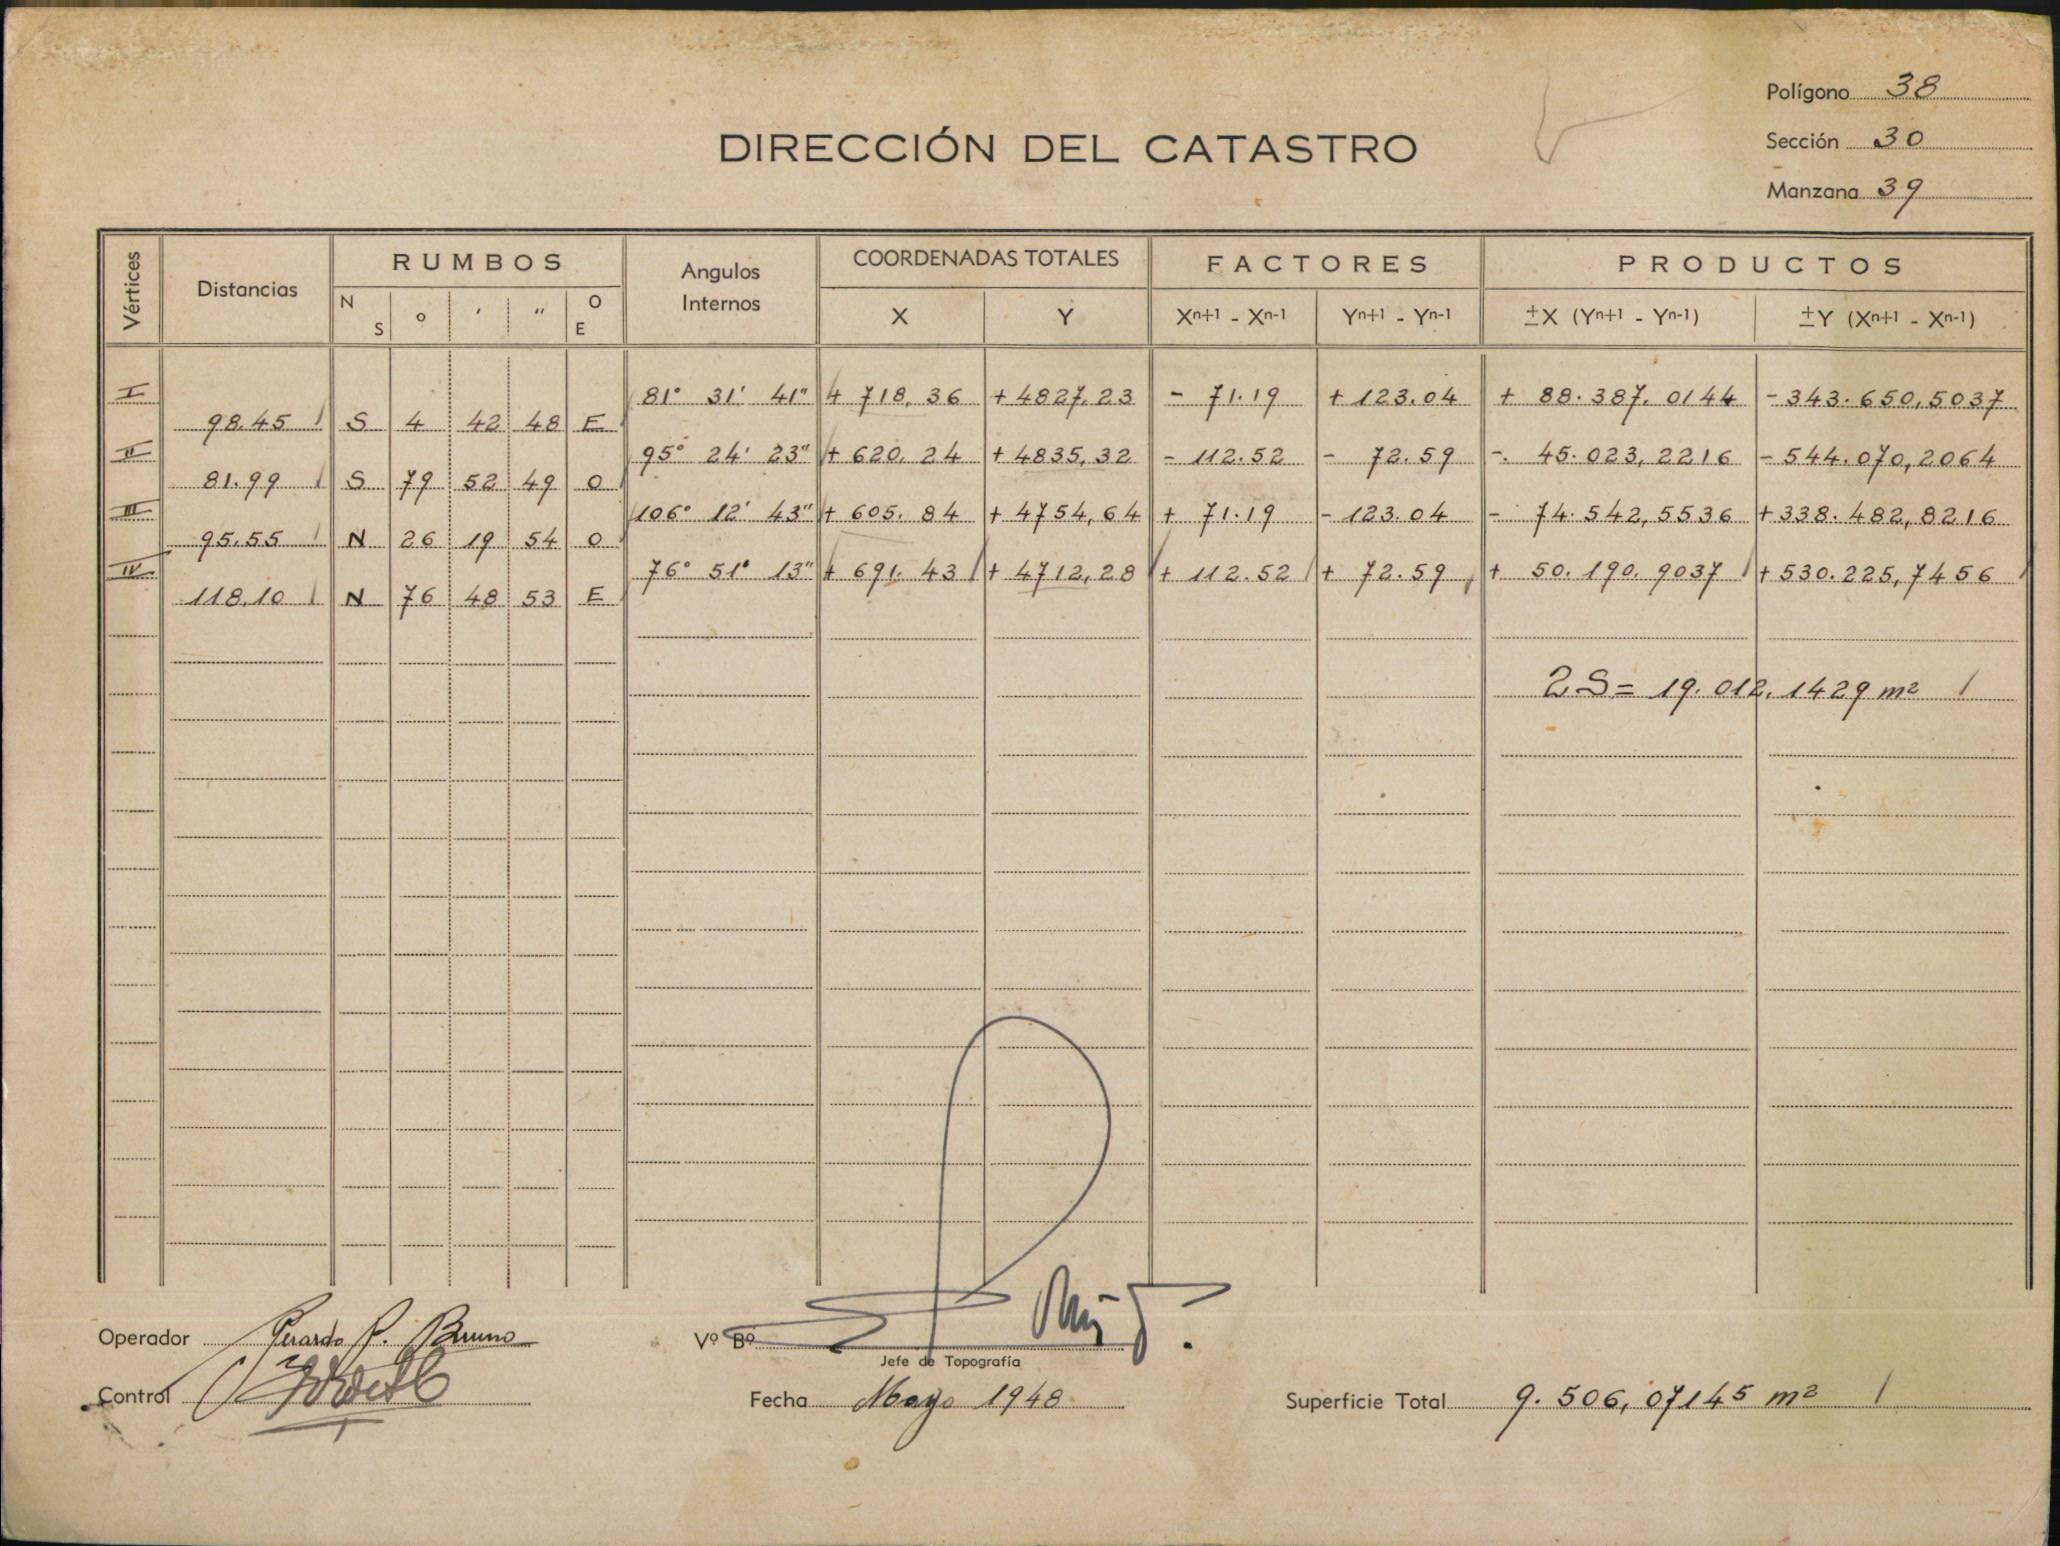 Polígono 38
DIRECCIÓN DEL CATASTRO
Sección 30
Manzana 39
Vértices Distancias RUMBOS Angulos Internos COORDENADAS TOTALES FACTORES PRODUCTOS
N S ° ' " O E X Y Xn+1 - Xn-1 Yn+1 - Yn-1 ±X (Yn+1 - Yn-1) ±Y (Xn+1 - Xn-1)
I 81° 31' 41" + 718,36 + 4827,23 - 71.19 + 123.04 + 88.387,0144 - 343.650,5037
98.45 S 4 42 48 E
II 95° 24' 23" + 620,24 + 4835,32 - 112.52 - 72.59 - 45.023,2216 - 544.070,2064
81.99 S 79 52 49 O
III 106° 12' 43" + 605.84 + 4754,64 + 71.19 - 123.04 - 74.542,5536 + 338.482,8216
95.55 N 26 19 54 O
IV 76° 51' 13" + 691.43 + 4712,28 + 112.52 + 72.59 + 50.190.9037 + 530.225,7456
118.10 N 76 48 53 E
2S = 19.012.1429 m²
Operador Gerardo P. Bruno
Vº Bº
Jefe de Topografía
Control
Fecha Mayo 1948
Superficie Total 9.506,07145 m²